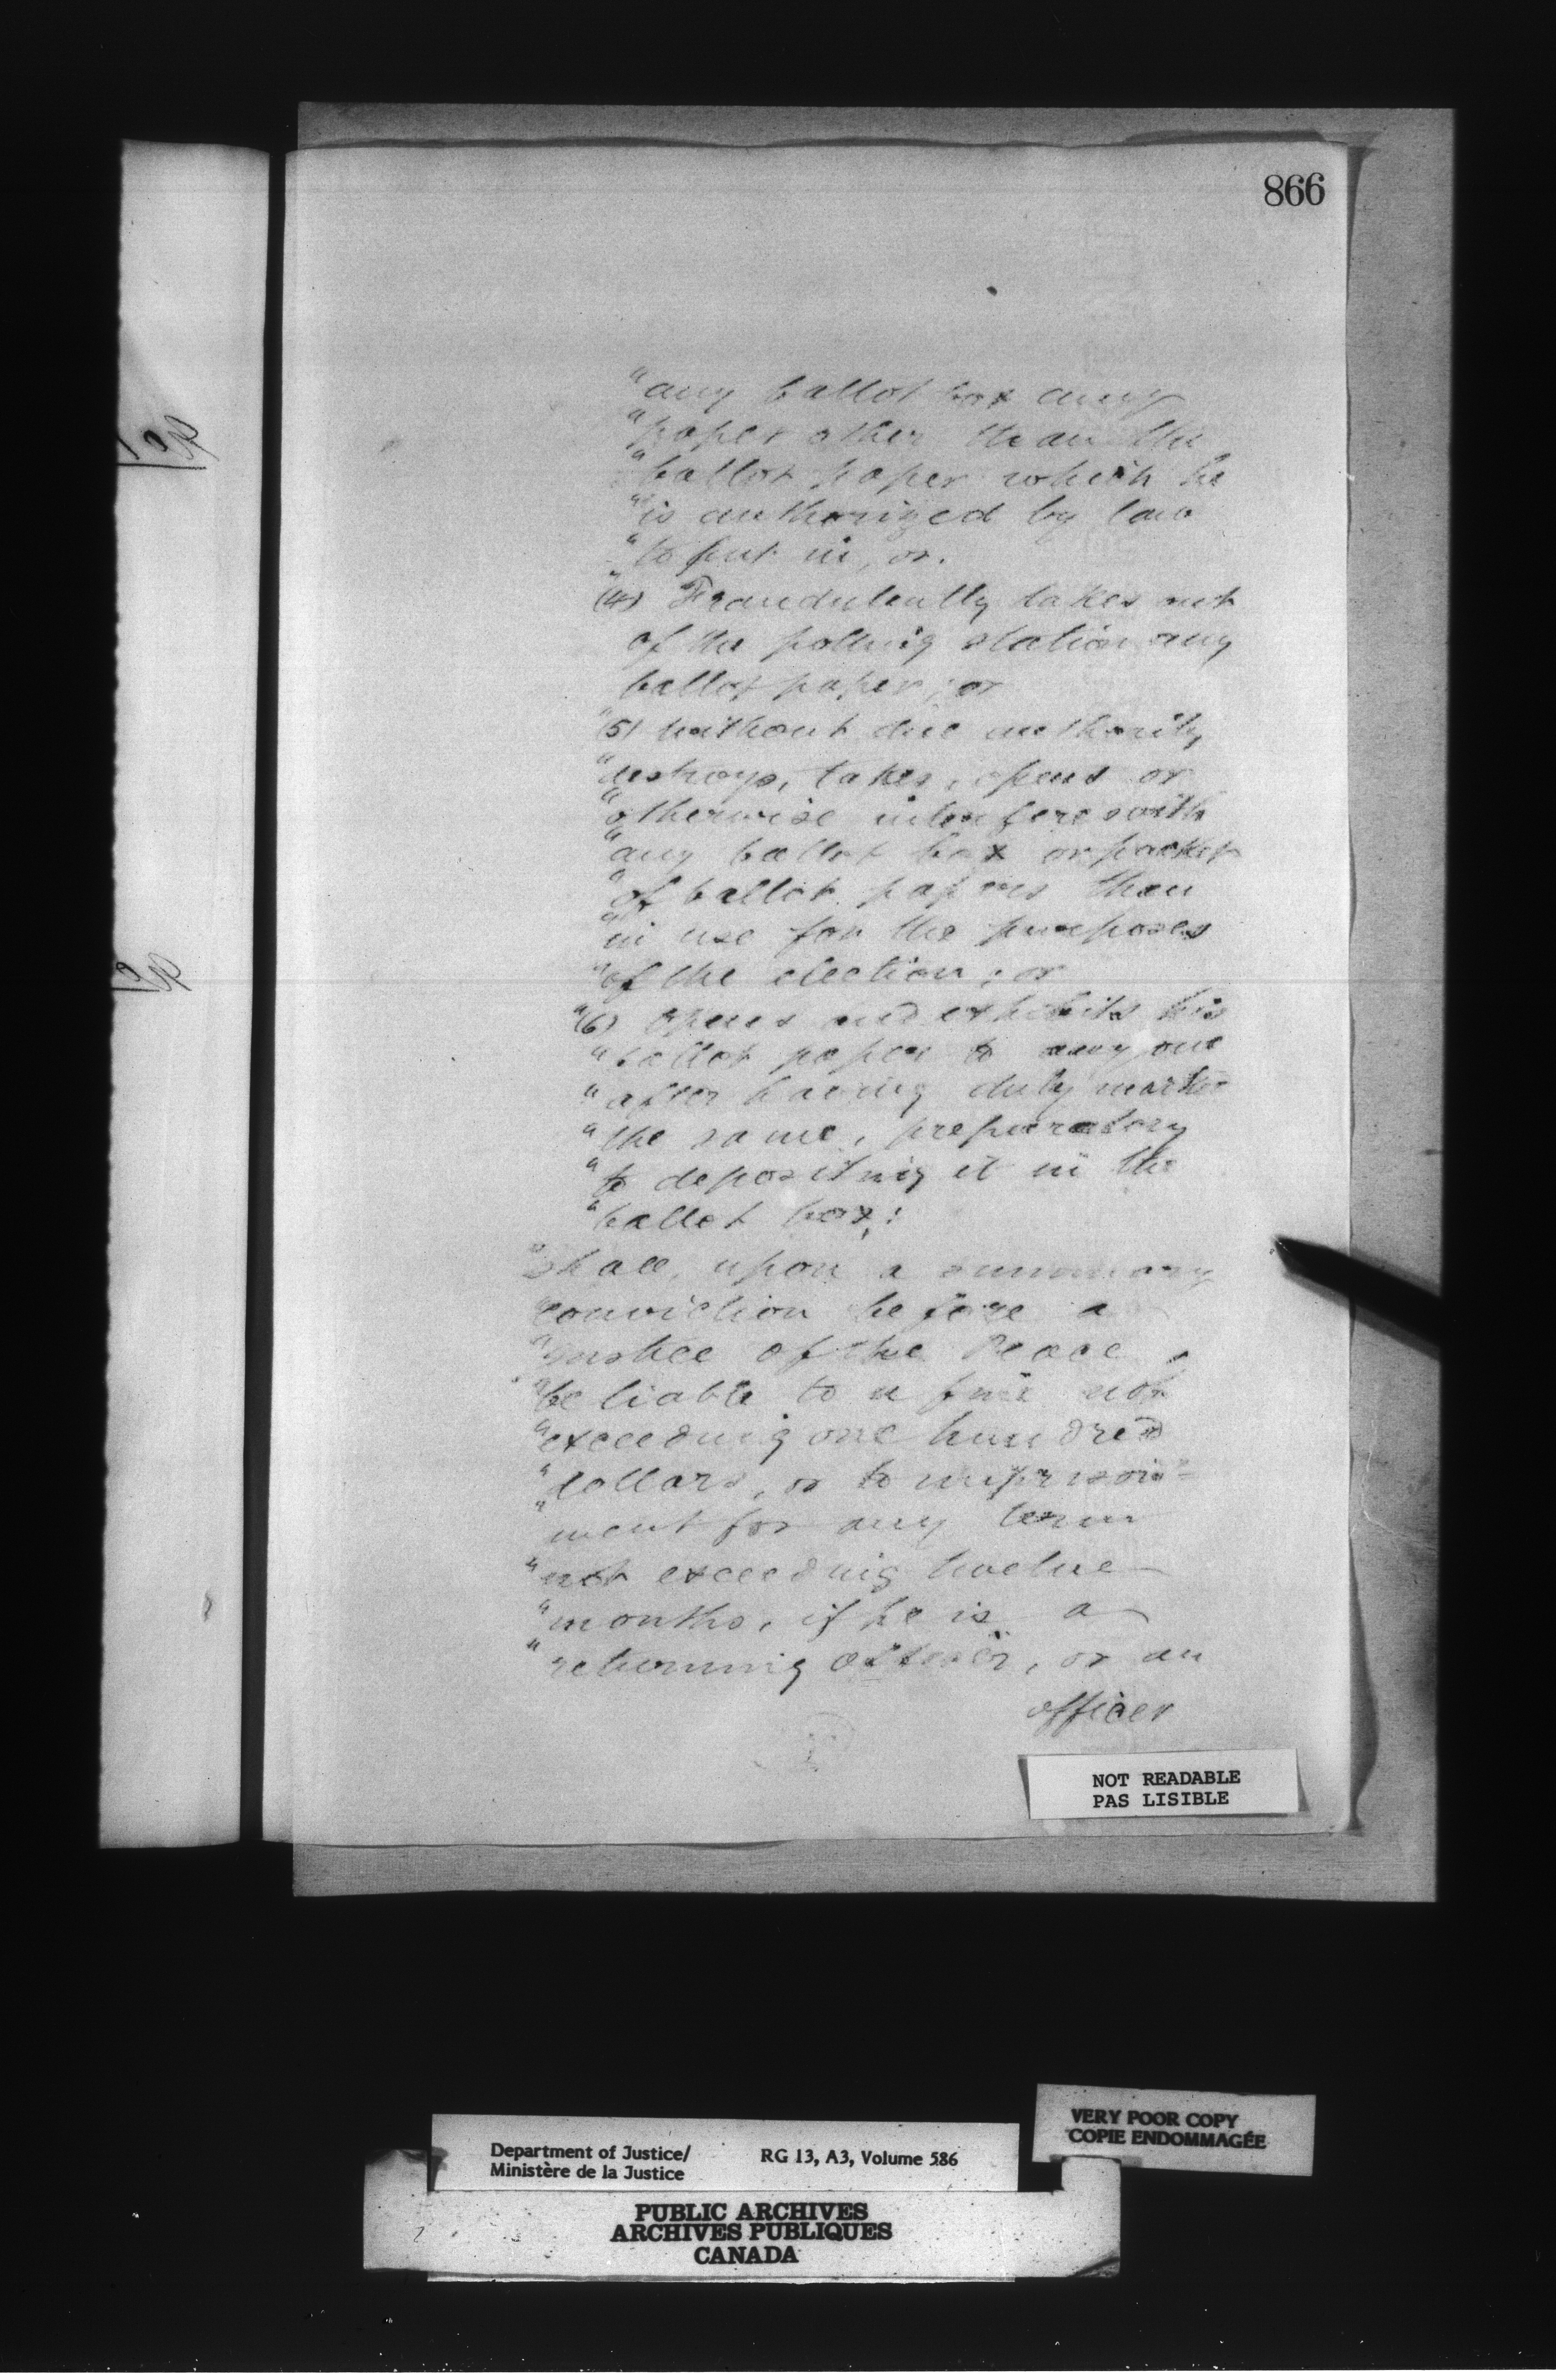 866
"any ballot box any
"paper other than the
"ballot paper which he
"is authorized by law
"to put in, or.
"(4) Fraudulently takes out
of the polling station any
ballot paper; or
"(5) without due authority,
"destroys, takes, opens or
"otherwise interferes with
"any ballot box or packet
"of ballot papers then
"in use for the purposes
"of the election; or
"(6) opens and exhibits his
"ballot paper to any one
"after having duly marked
"the same, preparatory
"to depositing it in the
"ballot box;
"Shall, upon a summary
"conviction before a
"Justice of the Peace,
"be liable to a fine not
"exceeding one hundred
"dollars, or to imprison-
"ment for any term
"not exceeding twelve
"months, if he is a
"returning officer, or an
officer
NOT READABLE
PAS LISIBLE
VERY POOR COPY
COPIE ENDOMMAGÉE
Department of Justice/ RG 13, A3, Volume 586
Ministère de la Justice
PUBLIC ARCHIVES
ARCHIVES PUBLIQUES
CANADA